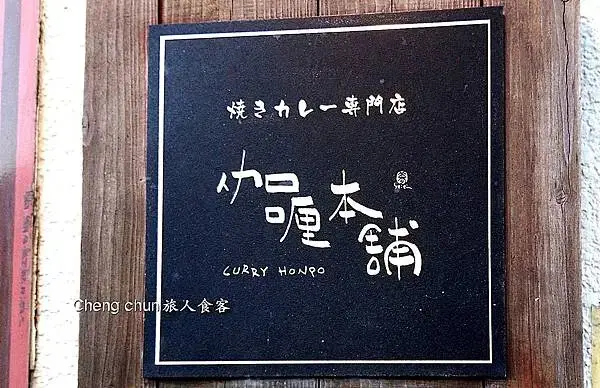 焼きカレー専門店
伽哩本舗
CURRY HONPO
Cheng chun旅人食客